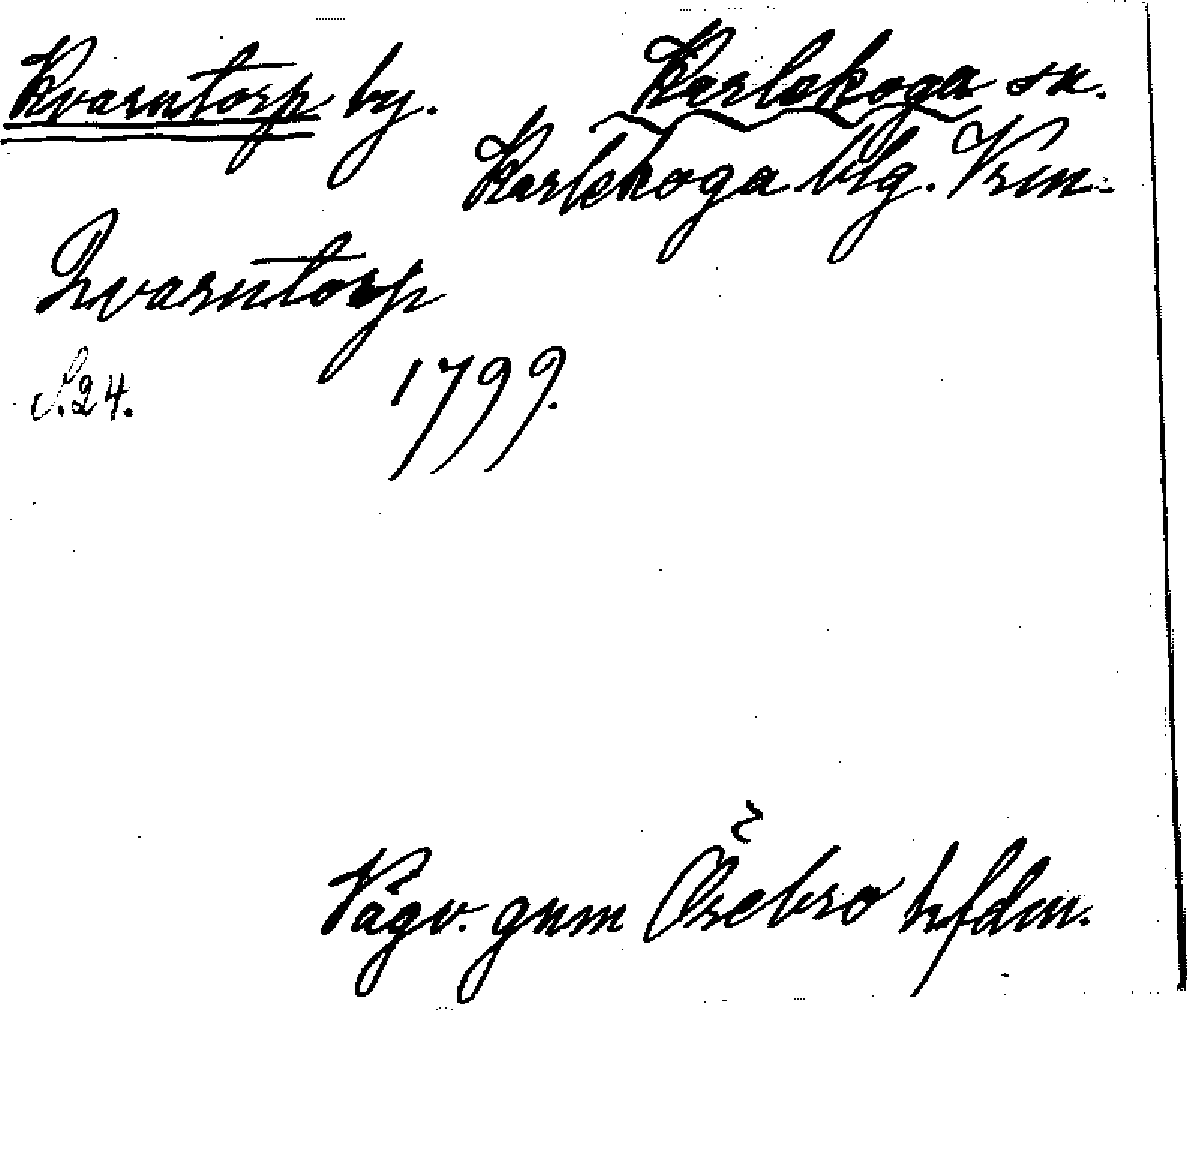 Kvarntorp by. Karlskoga sn.
Karlskoga blg. Vrm.
Qvarntorp
S. 24. 1799.
Vägv. gnm Örebro hfdm.